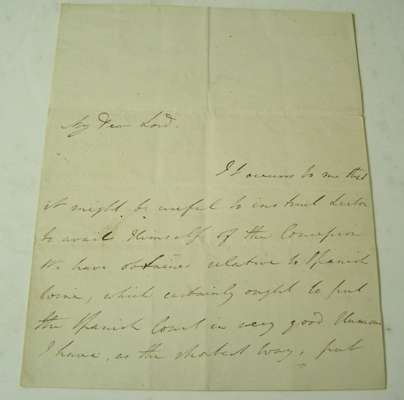 My Dear Lord.
It occurs to me that
it might be useful to instruct
to avail Himself of the Concession
We have obtained relative to Spanish
, which certainly ought to put
the Spanish Court in very good Humour
I have, as the shortest way, put